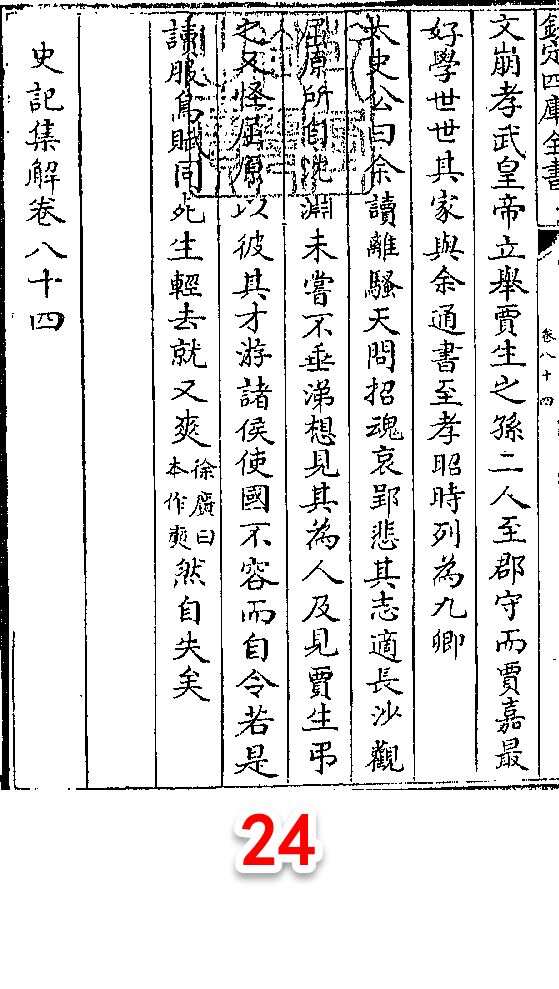 欽定四庫全書
卷八十四
文崩孝武皇帝立舉賈生之孫二人至郡守而賈嘉最
好學世世其家與余通書至孝昭時列為九卿
太史公曰余讀離騷天問招魂哀郢悲其志適長沙觀
屈原所自沈淵未嘗不垂涕想見其為人及見賈生弔
之又怪屈原以彼其才游諸侯使國不容而自令若是
讀服鳥賦同死生輕去就又爽徐廣曰
本作奭然自失矣
史記集解卷八十四
24